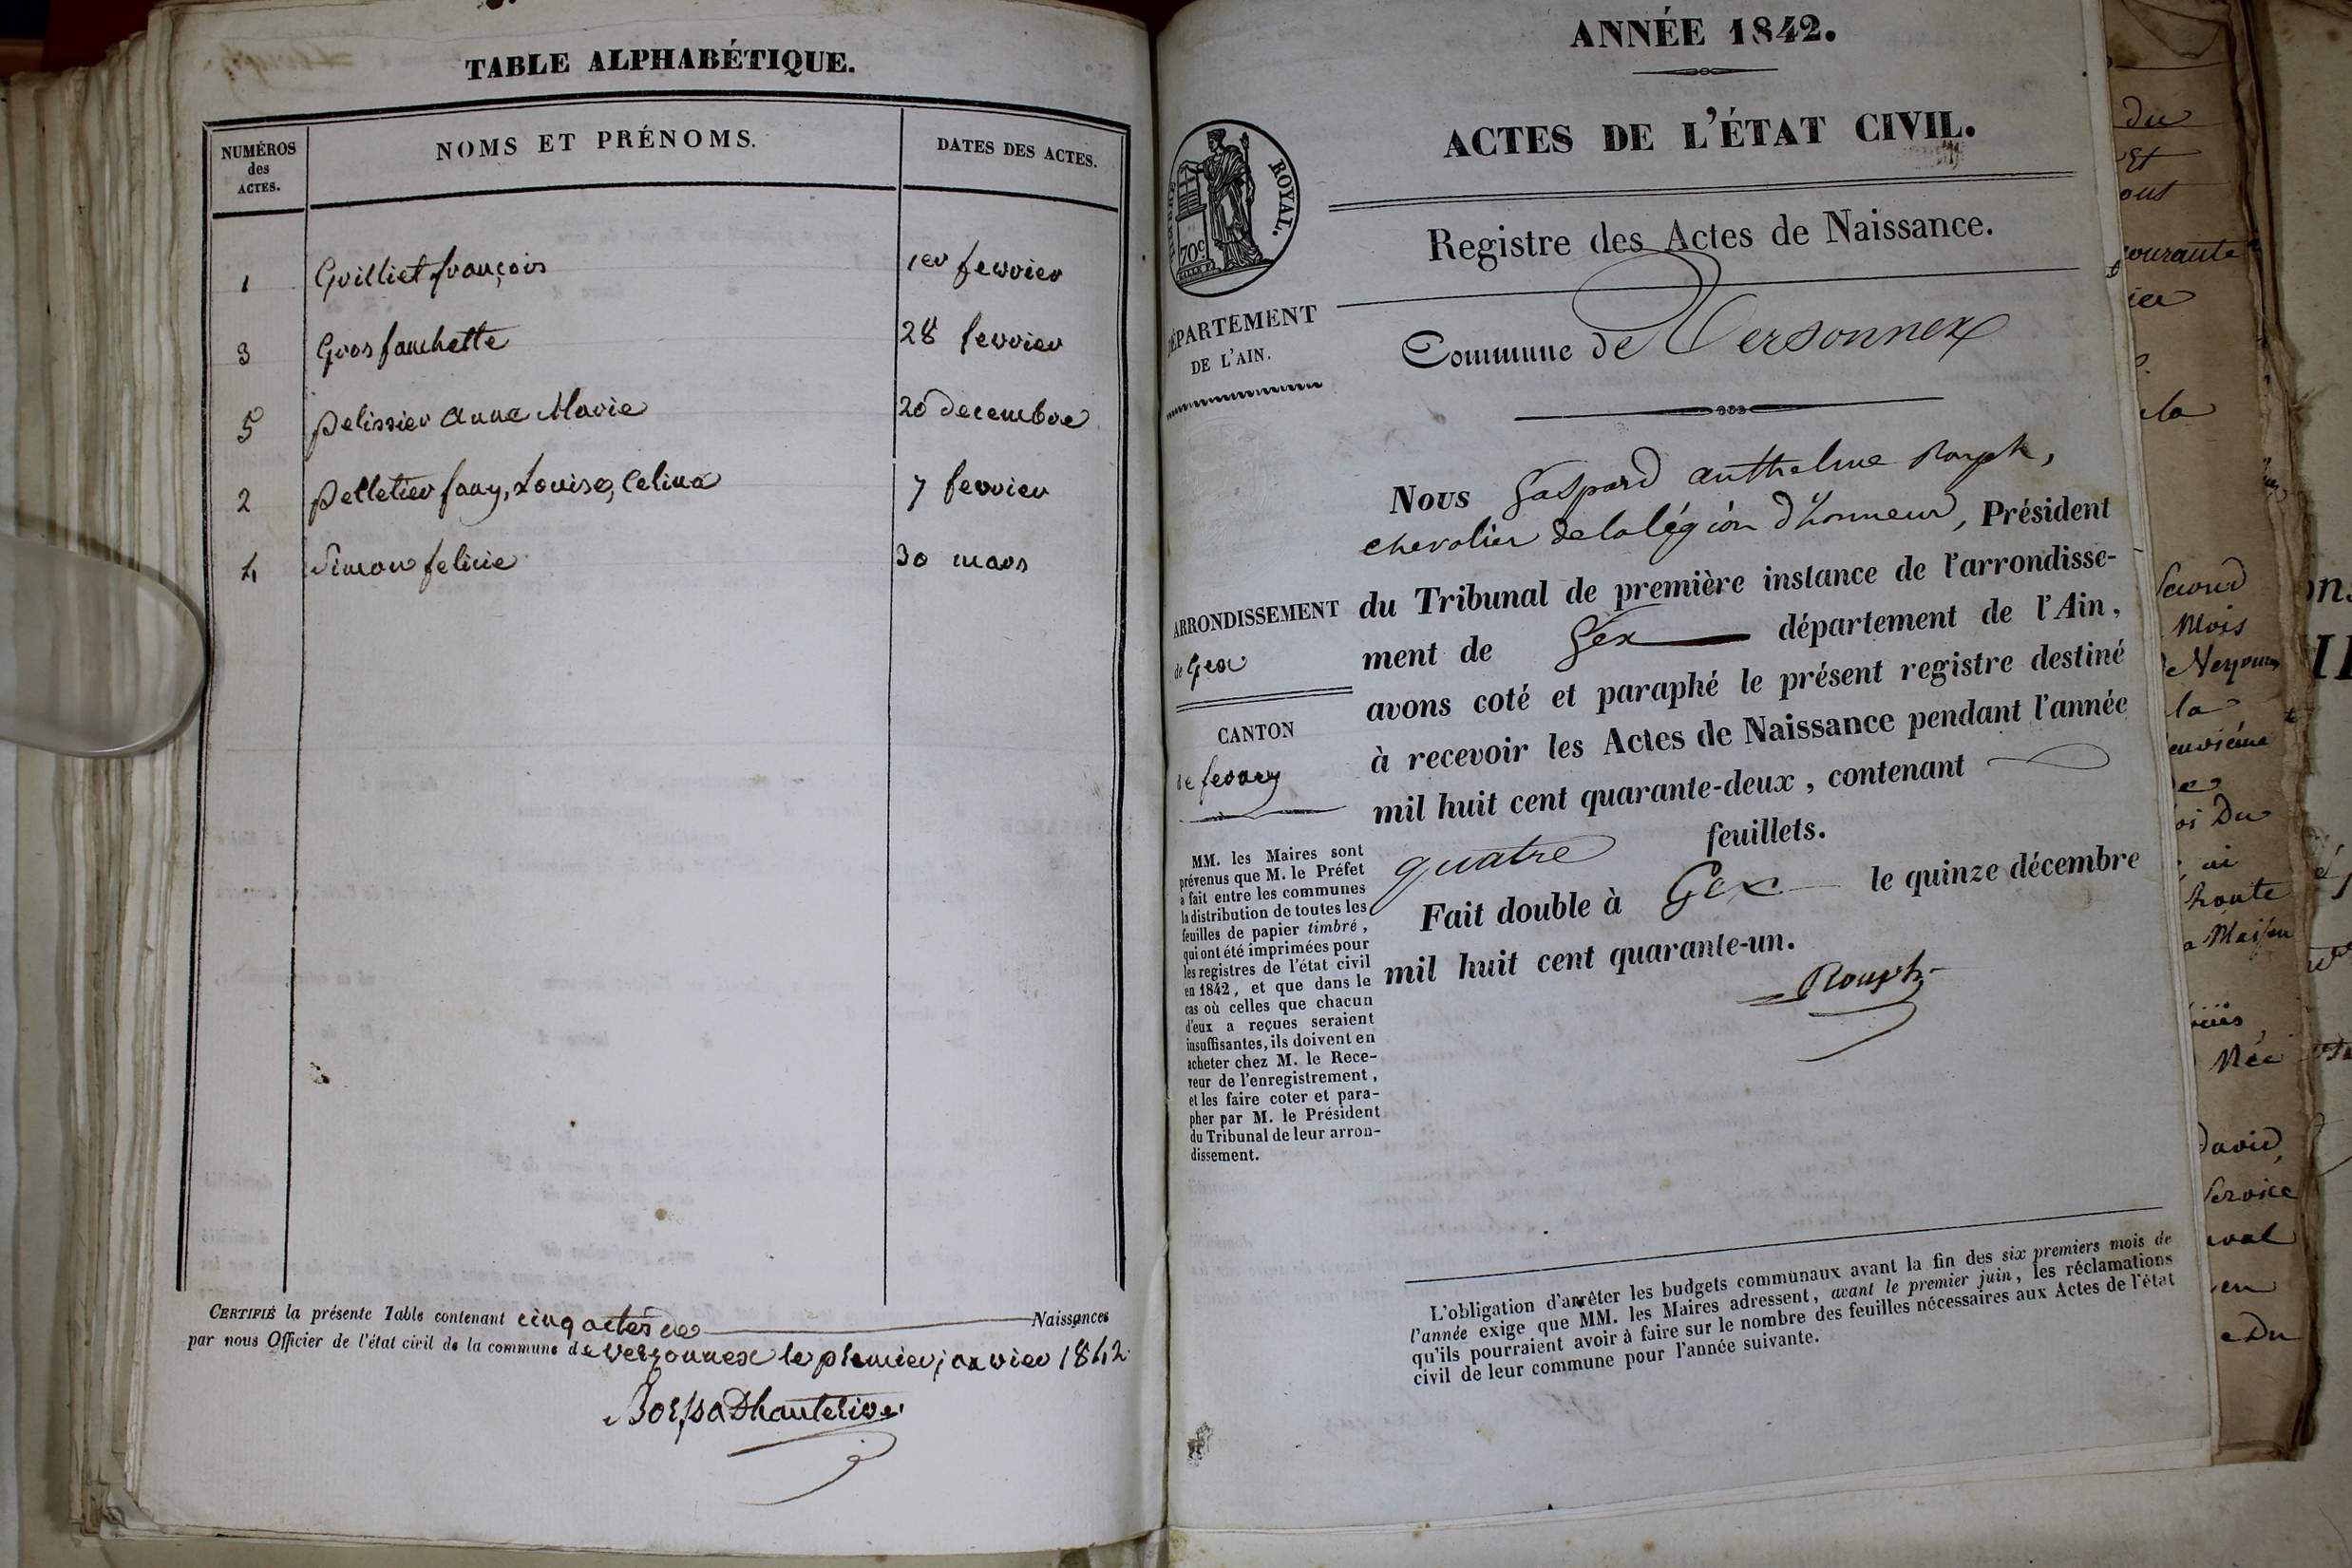 TABLE ALPHABÉTIQUE.
NUMÉROS des ACTES.
NOMS ET PRÉNOMS.
DATES DES ACTES.
1 Grilliet françois 1er fevrier
3 Gros fanchette 28 fevrier
5 pelissier anne Marie 20 decembre
2 pelletier fany, Louise, Celina 7 fevrier
4 Simon felicie 30 mars
CERTIFIÉ la présente Table contenant cinq actes de Naissances
par nous Officier de l'état civil de la commune de versonnex le premier janvier 1842
ANNÉE 1842.
ACTES DE L'ÉTAT CIVIL.
TIMBRE ROYAL.
70c
Registre des Actes de Naissance.
DÉPARTEMENT
DE L'AIN.
Commune de Versonnex
Nous Gaspard anthelme Rouph,
chevalier de la légion d'honneur, Président
du Tribunal de première instance de l'arrondisse-
ment de Gex département de l'Ain,
avons coté et paraphé le présent registre destiné
à recevoir les Actes de Naissance pendant l'année
mil huit cent quarante-deux, contenant
quatre feuillets.
Fait double à Gex le quinze décembre
mil huit cent quarante-un.
Rouph
ARRONDISSEMENT
de Gex
CANTON
de ferney
MM. les Maires sont
prévenus que M. le Préfet
a fait entre les communes
la distribution de toutes les
feuilles de papier timbré,
qui ont été imprimées pour
les registres de l'état civil
en 1842, et que dans le
cas où celles que chacun
d'eux a reçues seraient
insuffisantes, ils doivent en
acheter chez M. le Rece-
veur de l'enregistrement,
et les faire coter et para-
pher par M. le Président
du Tribunal de leur arron-
dissement.
L'obligation d'arrêter les budgets communaux avant la fin des six premiers mois de
l'année exige que MM. les Maires adressent, avant le premier juin, les réclamations
qu'ils pourraient avoir à faire sur le nombre des feuilles nécessaires aux Actes de l'état
civil de leur commune pour l'année suivante.
du
Et
la
Second
Mois
la
Du
Route
Née
David,
Service
Du